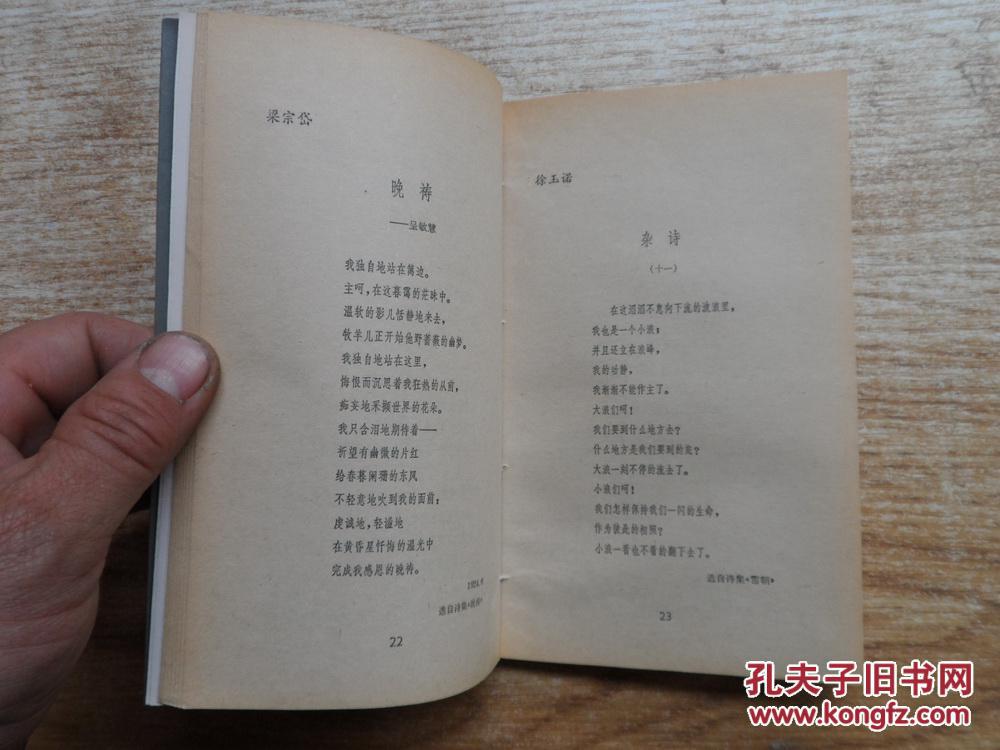 梁宗岱
晚祷
——呈敏慧
我独自地站在篱边。
主呵，在这暮霭的茫昧中。
温软的影儿恬静地来去，
牧羊儿正开始他野蔷薇的幽梦。
我独自地站在这里，
悔恨而沉思着我狂热的从前，
痴妄地采撷世界的花朵。
我只含泪地期待着——
祈望有幽微的片红
给春暮阑珊的东风
不轻意地吹到我的面前：
虔诚地，轻谧地
在黄昏星忏悔的温光中
完成我感恩的晚祷。
选自诗集《晚祷》
22
徐玉诺
杂诗
（十一）
在这滔滔不息向下流的波浪里，
我也是一个小浪；
并且还立在浪峰，
我的动静，
我渐渐不能作主了。
大浪们呵！
我们要到什么地方去？
什么地方是我们要到的呢？
大浪一刻不停的流去了。
小浪们呵！
我们怎样保持我们一闪的生命，
作为彼此的相照？
小浪一看也不看的翻下去了。
选自诗集《雪朝》
23
孔夫子旧书网
www.kongfz.com